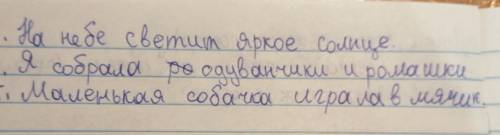 . На небе светит яркое солнце.
. Я собрала одуванчики и ромашки
. Маленькая собачка играла в мячик.